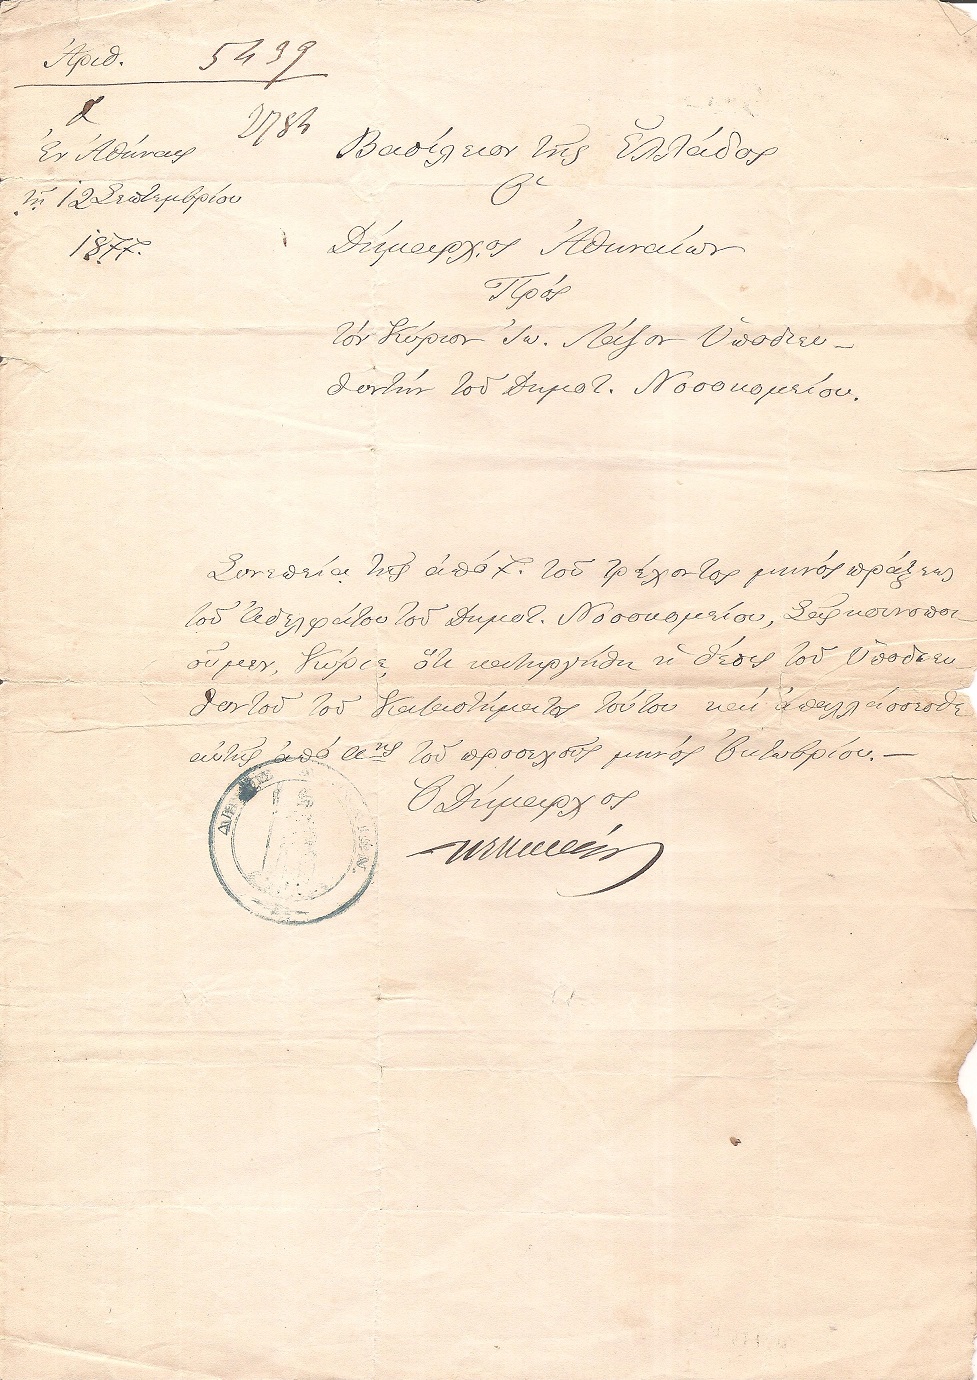 Ἀριθ. 5439
2784
Ἐν Ἀθήναις
τῇ 12 Σεπτεμβρίου
1877.
Βασίλειον τῆς Ἑλλάδος
Ὁ
Δήμαρχος Ἀθηναίων
Πρὸς
τὸν Κύριον Ἰω. Ὑποδιευ–
θυντὴν τοῦ Δημοτ. Νοσοκομείου.
Συνεπείᾳ τῆς ἀπὸ 7. τοῦ τρέχοντος μηνὸς πράξεως
τοῦ Ἀδελφάτου τοῦ Δημοτ. Νοσοκομείου, Σᾶς κοινοποι–
οῦμεν, Κύριε, ὅτι κατηργήθη ἡ θέσις τοῦ Ὑποδιευ
θυντοῦ τοῦ Καταστήματος τούτου καὶ ἀπαλλάσσεσθε
αὐτῆς ἀπὸ αης τοῦ προσεχοῦς μηνὸς Ὀκτωβρίου.–
Ὁ Δήμαρχος